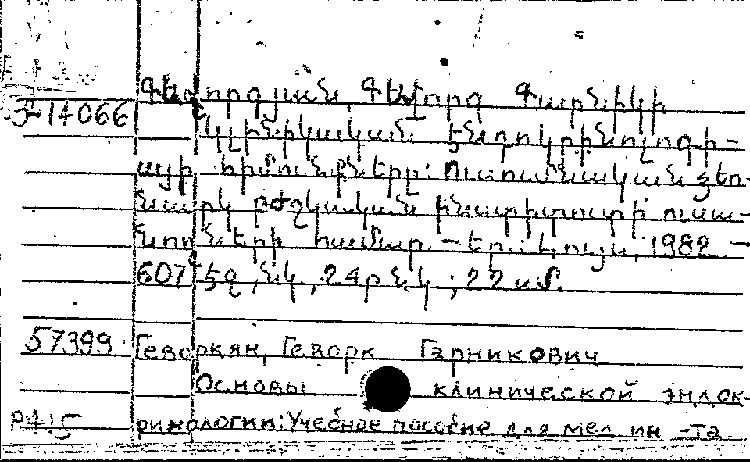 Գևորգյան Գևորգ Գառնիկի
Ֆ-14066
Կլինիկական էնդոկրինոլոգի-
այի հիմունքները: Ուսումնական ձեռ-
նարկ բժշկական ինստիտուտի ուսա-
նողների համար. — Եր.: Լույս, 1982. —
607 էջ, նկ., 24 թ. նկ.; 22 սմ.
57399 Геворкян, Геворк Гарникович
Основы клинической эндок-
ринологии: Учебное пособие для мед. ин-та